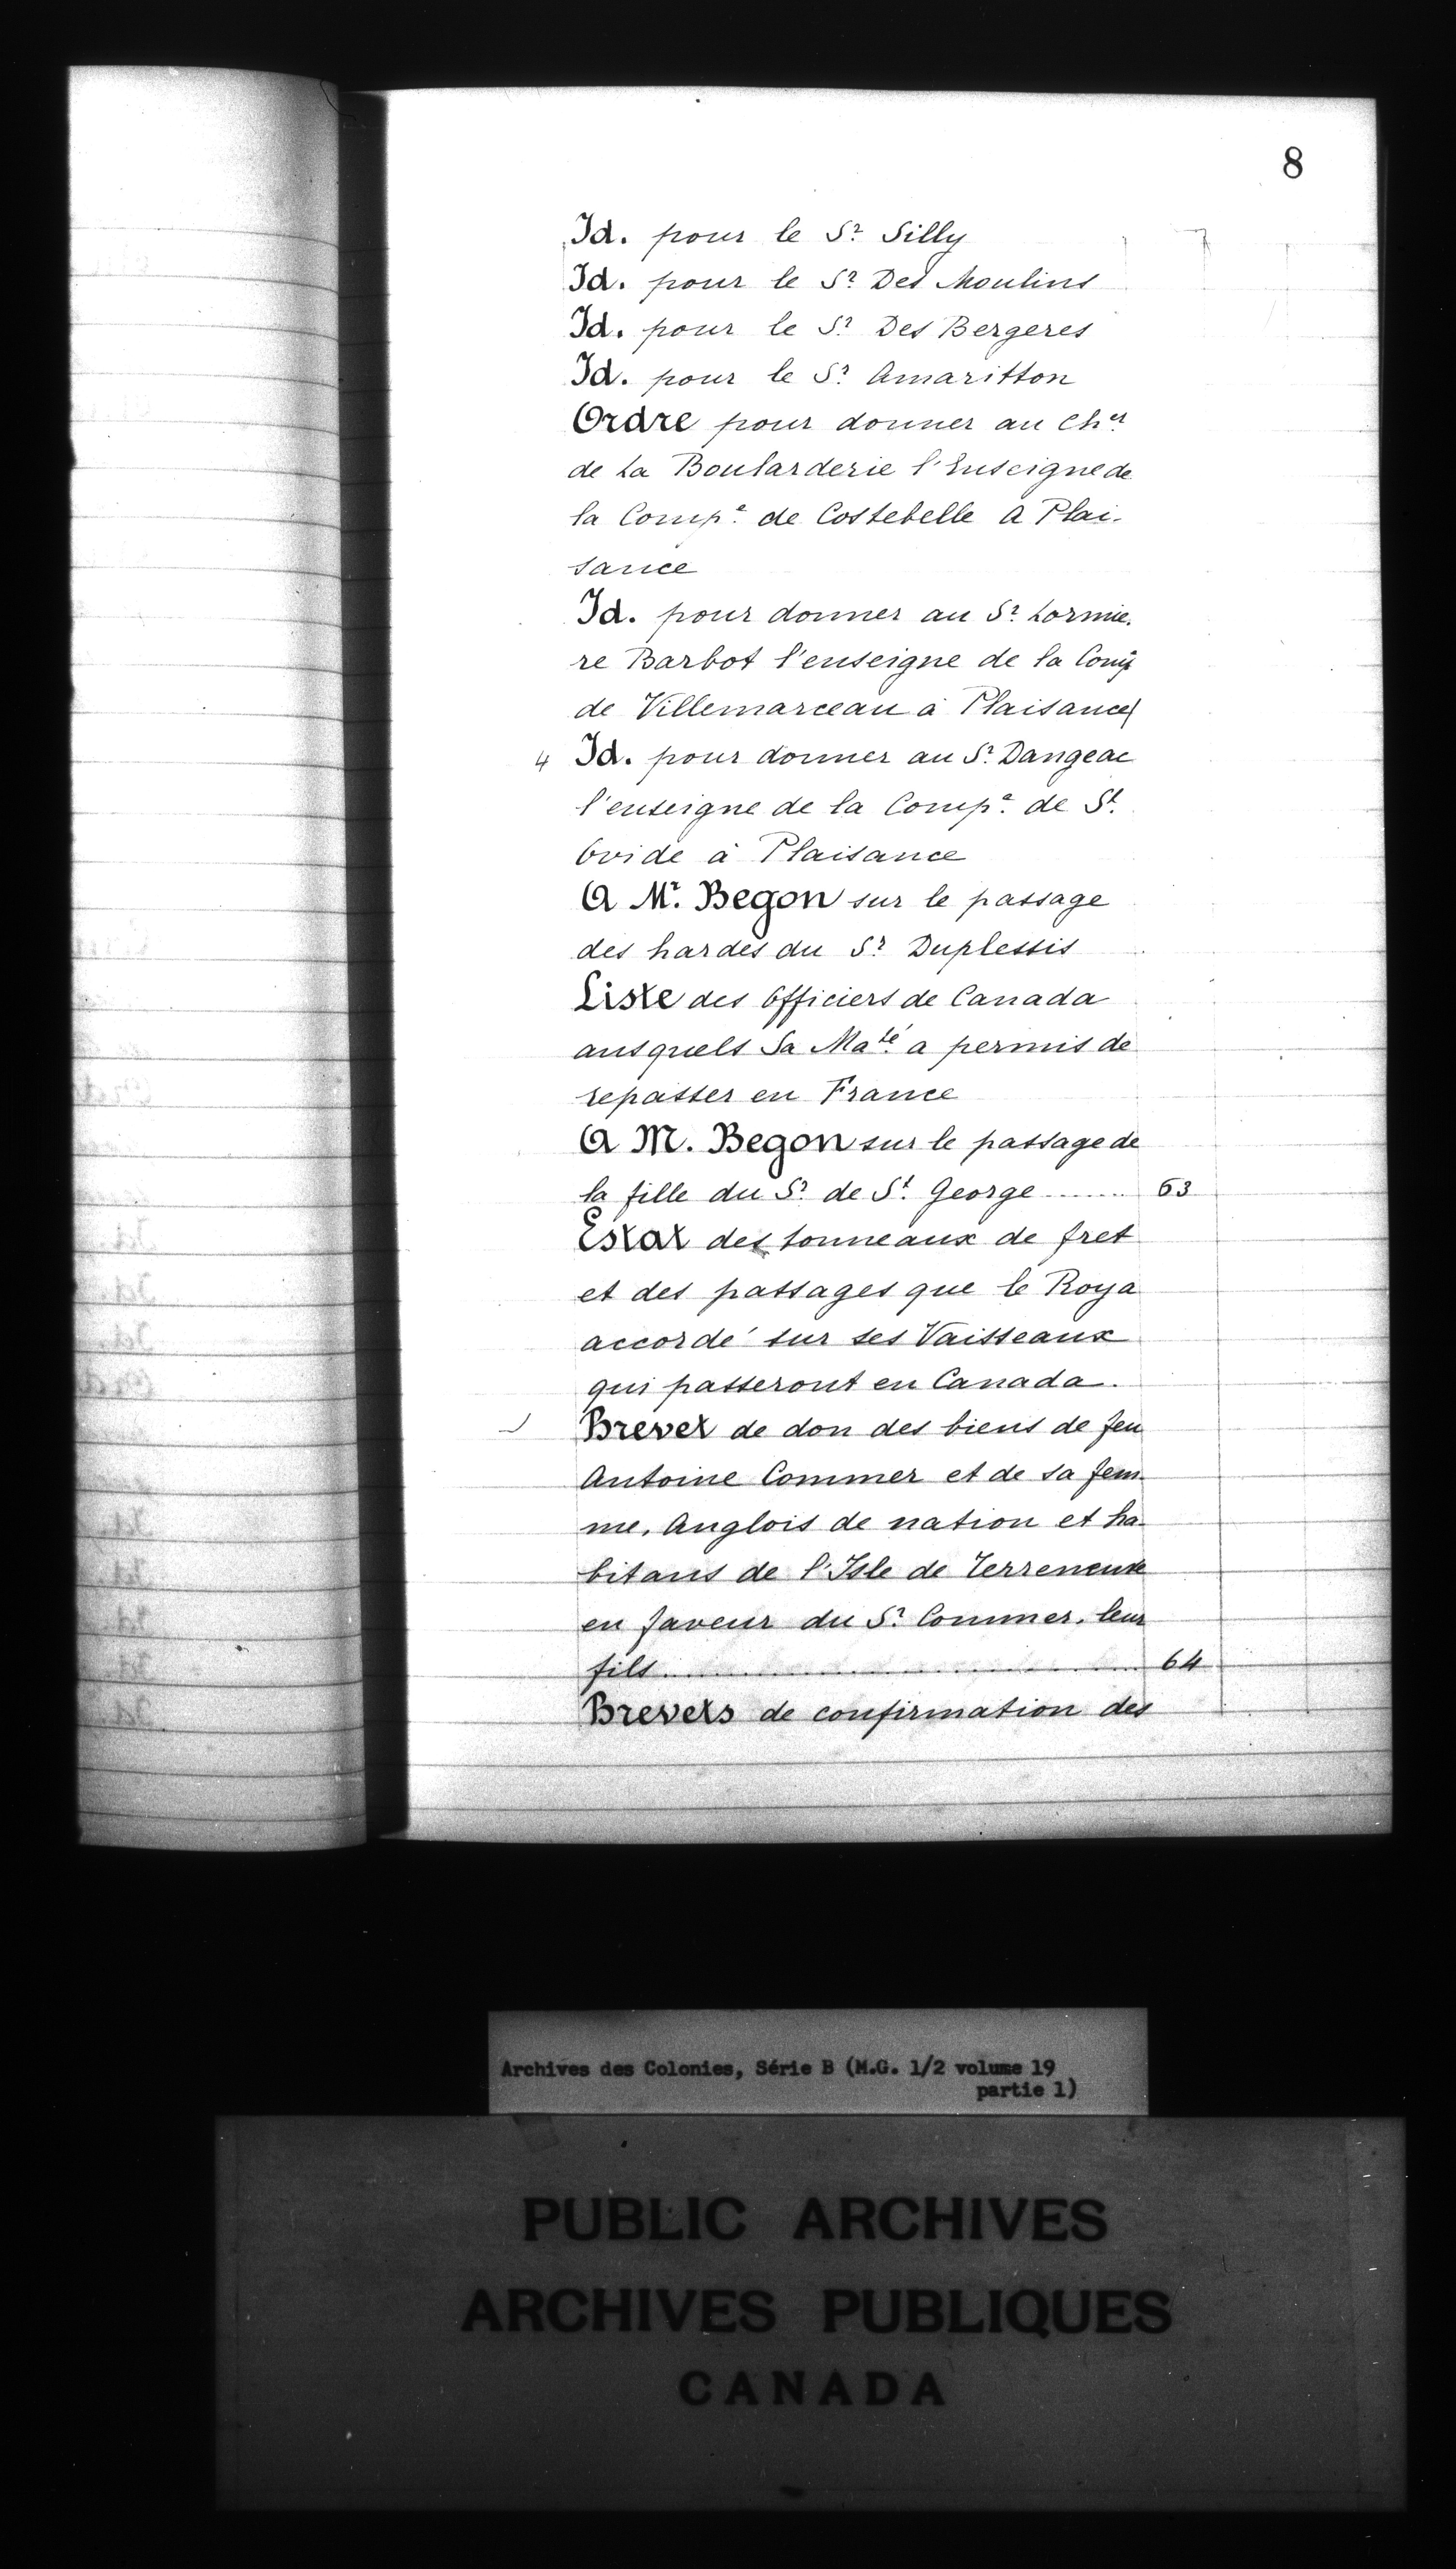 8
Id. pour le Sr. Silly
Id. pour le Sr. Des Moulins
Id. pour le Sr. Des Bergeres
Id. pour le Sr. Amaritton
Ordre pour donner au Cher.
de La Boularderie l'Enseigne de
la Compe. de Costebelle A Plai-
sance
Id. pour donner au Sr. Lormie.
re Barbot l'enseigne de la Comp
de Villemarceau à Plaisance
4 Id. pour donner au Sr. Dangeac
l'enseigne de la Compe. de St.
Ovide à Plaisance
A Mr. Begon sur le passage
des hardes du Sr. Duplessis
Liste des Officiers de Canada
ausquels Sa Maté. a permis de
repasser en France
A M. Begon sur le passage de
la fille du Sr. de St. George ........ 63
Estat des tonneaux de fret
et des passages que le Roy a
accordé sur ses Vaisseaux
qui passeront en Canada.
Brevet de don des biens de feu
Antoine Commer et de sa fem-
me, Anglois de nation et ha-
bitans de l'Isle de Terreneuve
en faveur du Sr. Commer, leur
fils ........ 64
Brevets de confirmation des
Archives des Colonies, Série B (M.G. 1/2 volume 19
partie 1)
PUBLIC ARCHIVES
ARCHIVES PUBLIQUES
CANADA